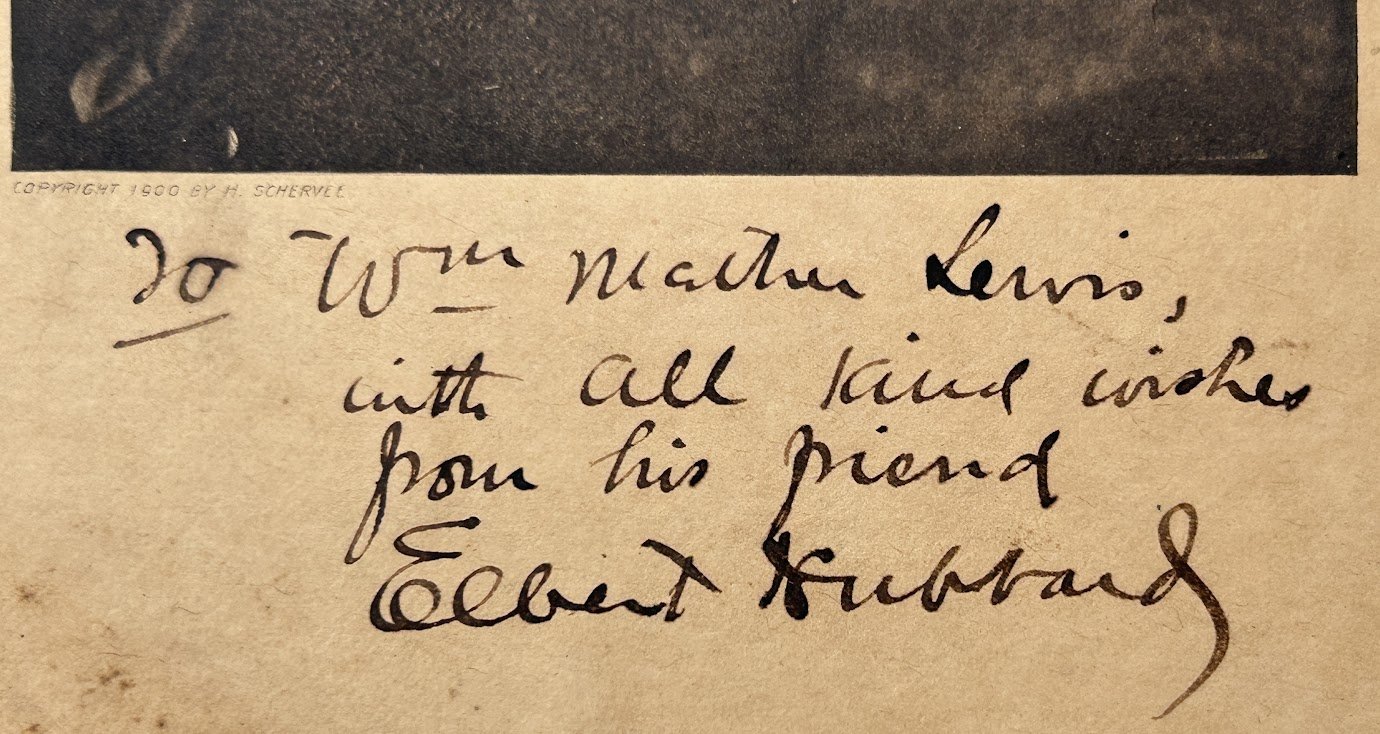 COPYRIGHT 1900 BY H. SCHERVEE
To Wm Mather Lewis,
with all kind wishes
from his friend
Elbert Hubbard